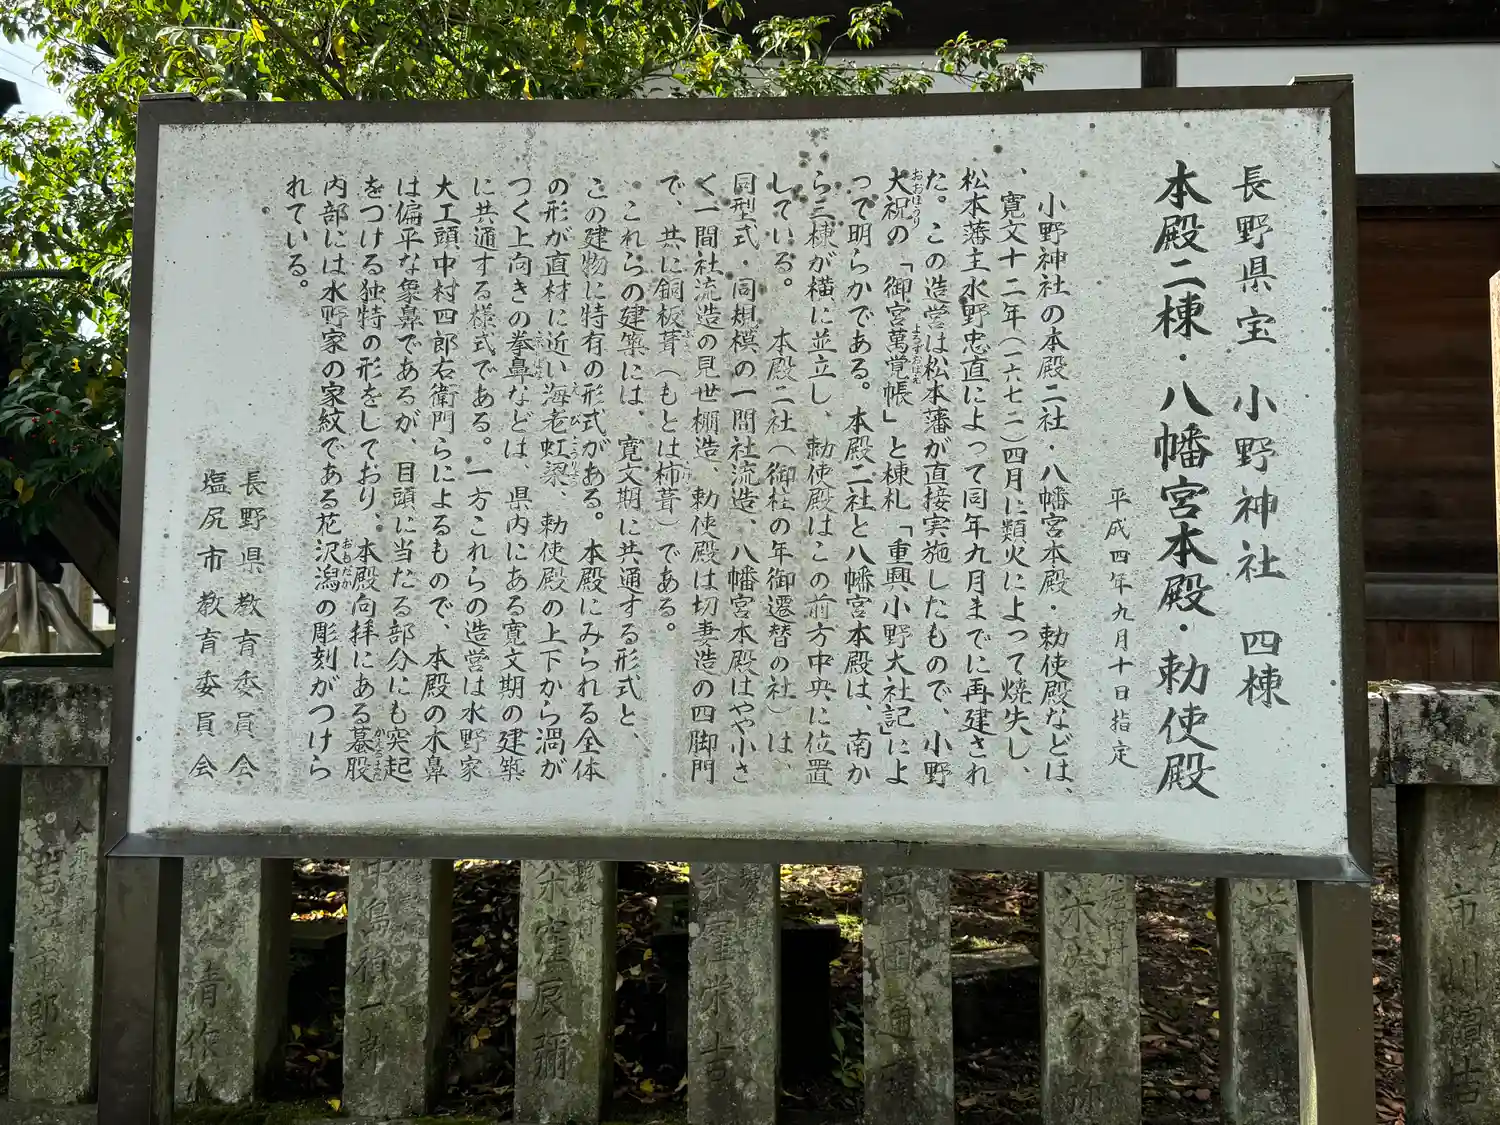 長野県宝 小野神社 四棟
本殿二棟・八幡宮本殿・勅使殿
平成四年九月十日指定
小野神社の本殿二社・八幡宮本殿・勅使殿などは、
、寛文十二年(一六七二)四月に類火によって焼失し、
松本藩主水野忠直によって同年九月までに再建され
た。この造営は松本藩が直接実施したもので、小野
大祝の「御宮萬覚帳」と棟札「重興小野大社記」によ
って明らかである。本殿二社と八幡宮本殿は、南か
ら三棟が横に並立し、勅使殿はこの前方中央に位置
している。 本殿二社(御柱の年御遷替の社)は、
同型式・同規模の一間社流造、八幡宮本殿はやや小さ
く一間社流造の見世棚造、勅使殿は切妻造の四脚門
で、共に銅板葺(もとは柿葺)である。
これらの建築には、寛文期に共通する形式と、
この建物に特有の形式がある。本殿にみられる全体
の形が直材に近い海老虹梁、勅使殿の上下から渦が
つく上向きの拳鼻などは、県内にある寛文期の建築
に共通する様式である。一方これらの造営は水野家
大工頭中村四郎右衛門らによるもので、本殿の木鼻
は偏平な象鼻であるが、目頭に当たる部分にも突起
をつける独特の形をしており、本殿向拝にある蟇股
内部には水野家の家紋である花沢潟の彫刻がつけら
れている。
長野県教育委員会
塩尻市教育委員会